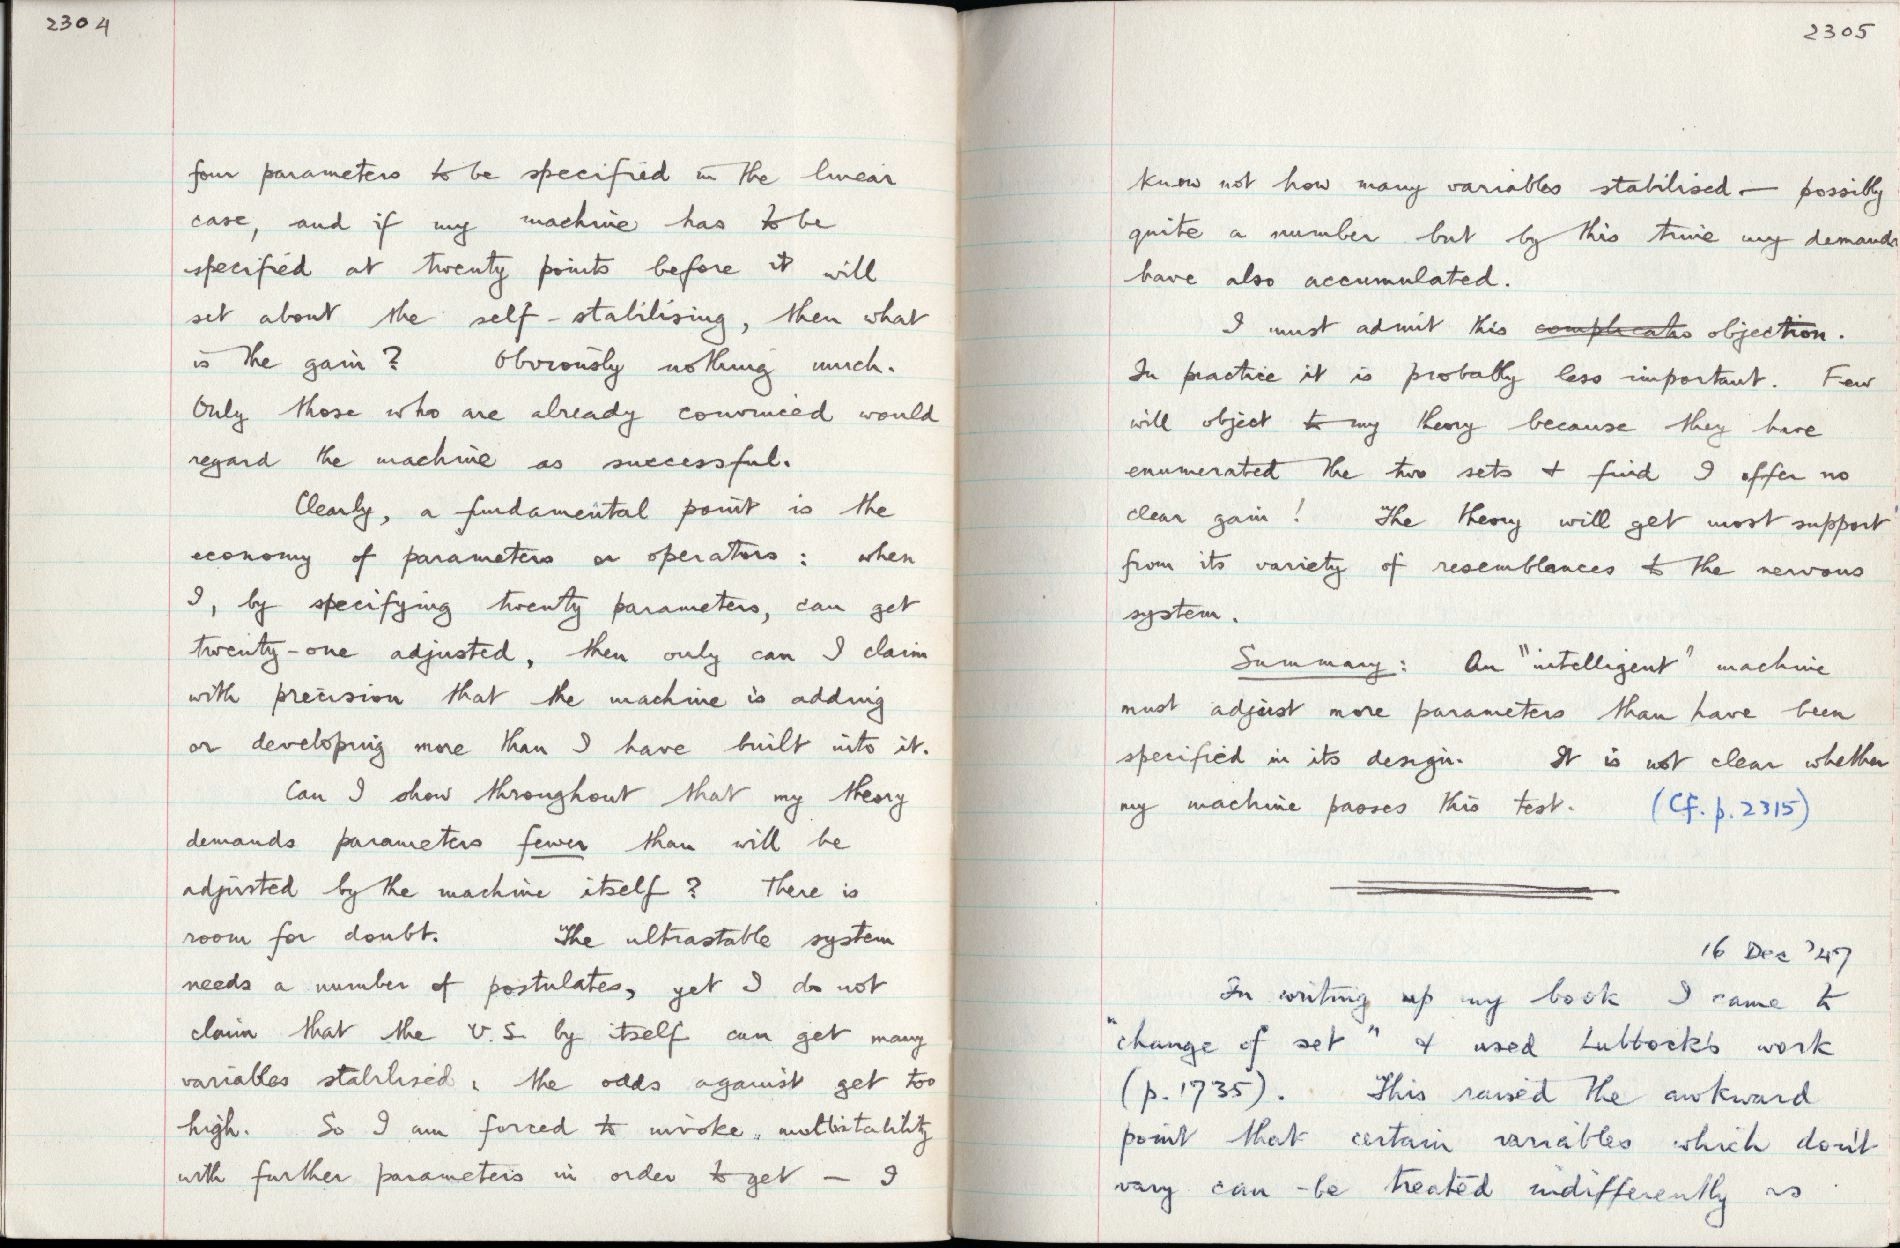 2304
four parameters to be specified in the linear
case, and if my machine has to be
specified at twenty points before it will
set about the self-stabilising, then what
is the gain? Obviously nothing much.
Only those who are already convinced would
regard the machine as successful.
Clearly, a fundamental point is the
economy of parameters or operators: when
I, by specifying twenty parameters, can get
twenty-one adjusted, then only can I claim
with precision that the machine is adding
or developing more than I have built into it.
Can I show throughout that my theory
demands parameters fewer than will be
adjusted by the machine itself? There is
room for doubt. The ultrastable system
needs a number of postulates, yet I do not
claim that the U.S. by itself can get many
variables stabilised, the odds against get too
high. So I am forced to invoke multistability
with further parameters in order to get — I
2305
know not how many variables stabilised — possibly
quite a number but by this time my demands
have also accumulated.
I must admit this objection.
In practice it is probably less important. Few
will object to my theory because they have
enumerated the two sets & find I offer no
clear gain! The theory will get most support
from its variety of resemblances to the nervous
system.
Summary: An "intelligent" machine
must adjust more parameters than have been
specified in its design. It is not clear whether
my machine passes this test. (Cf. p. 2315)
16 Dec '47
In writing up my book I came to
"change of set" & used Lubbock's work
(p. 1735). This raised the awkward
point that certain variables which don't
vary can be treated indifferently as